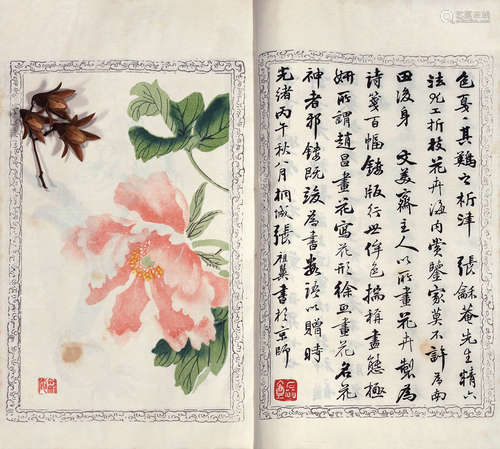 色真真其難々析津 張龢菴先生精六
法尤工折枝花卉海内赏鑒家莫不許為南
田後身 文美齋主人以所畫花卉製為
詩箋百幅鋟版行世俾色揣稱盡態極
妍所謂趙昌畫花寫花形徐熙畫花名花
神者邪鋟既竣為書數語以贈時
光緒丙午秋八月桐城張祖翼書於京師